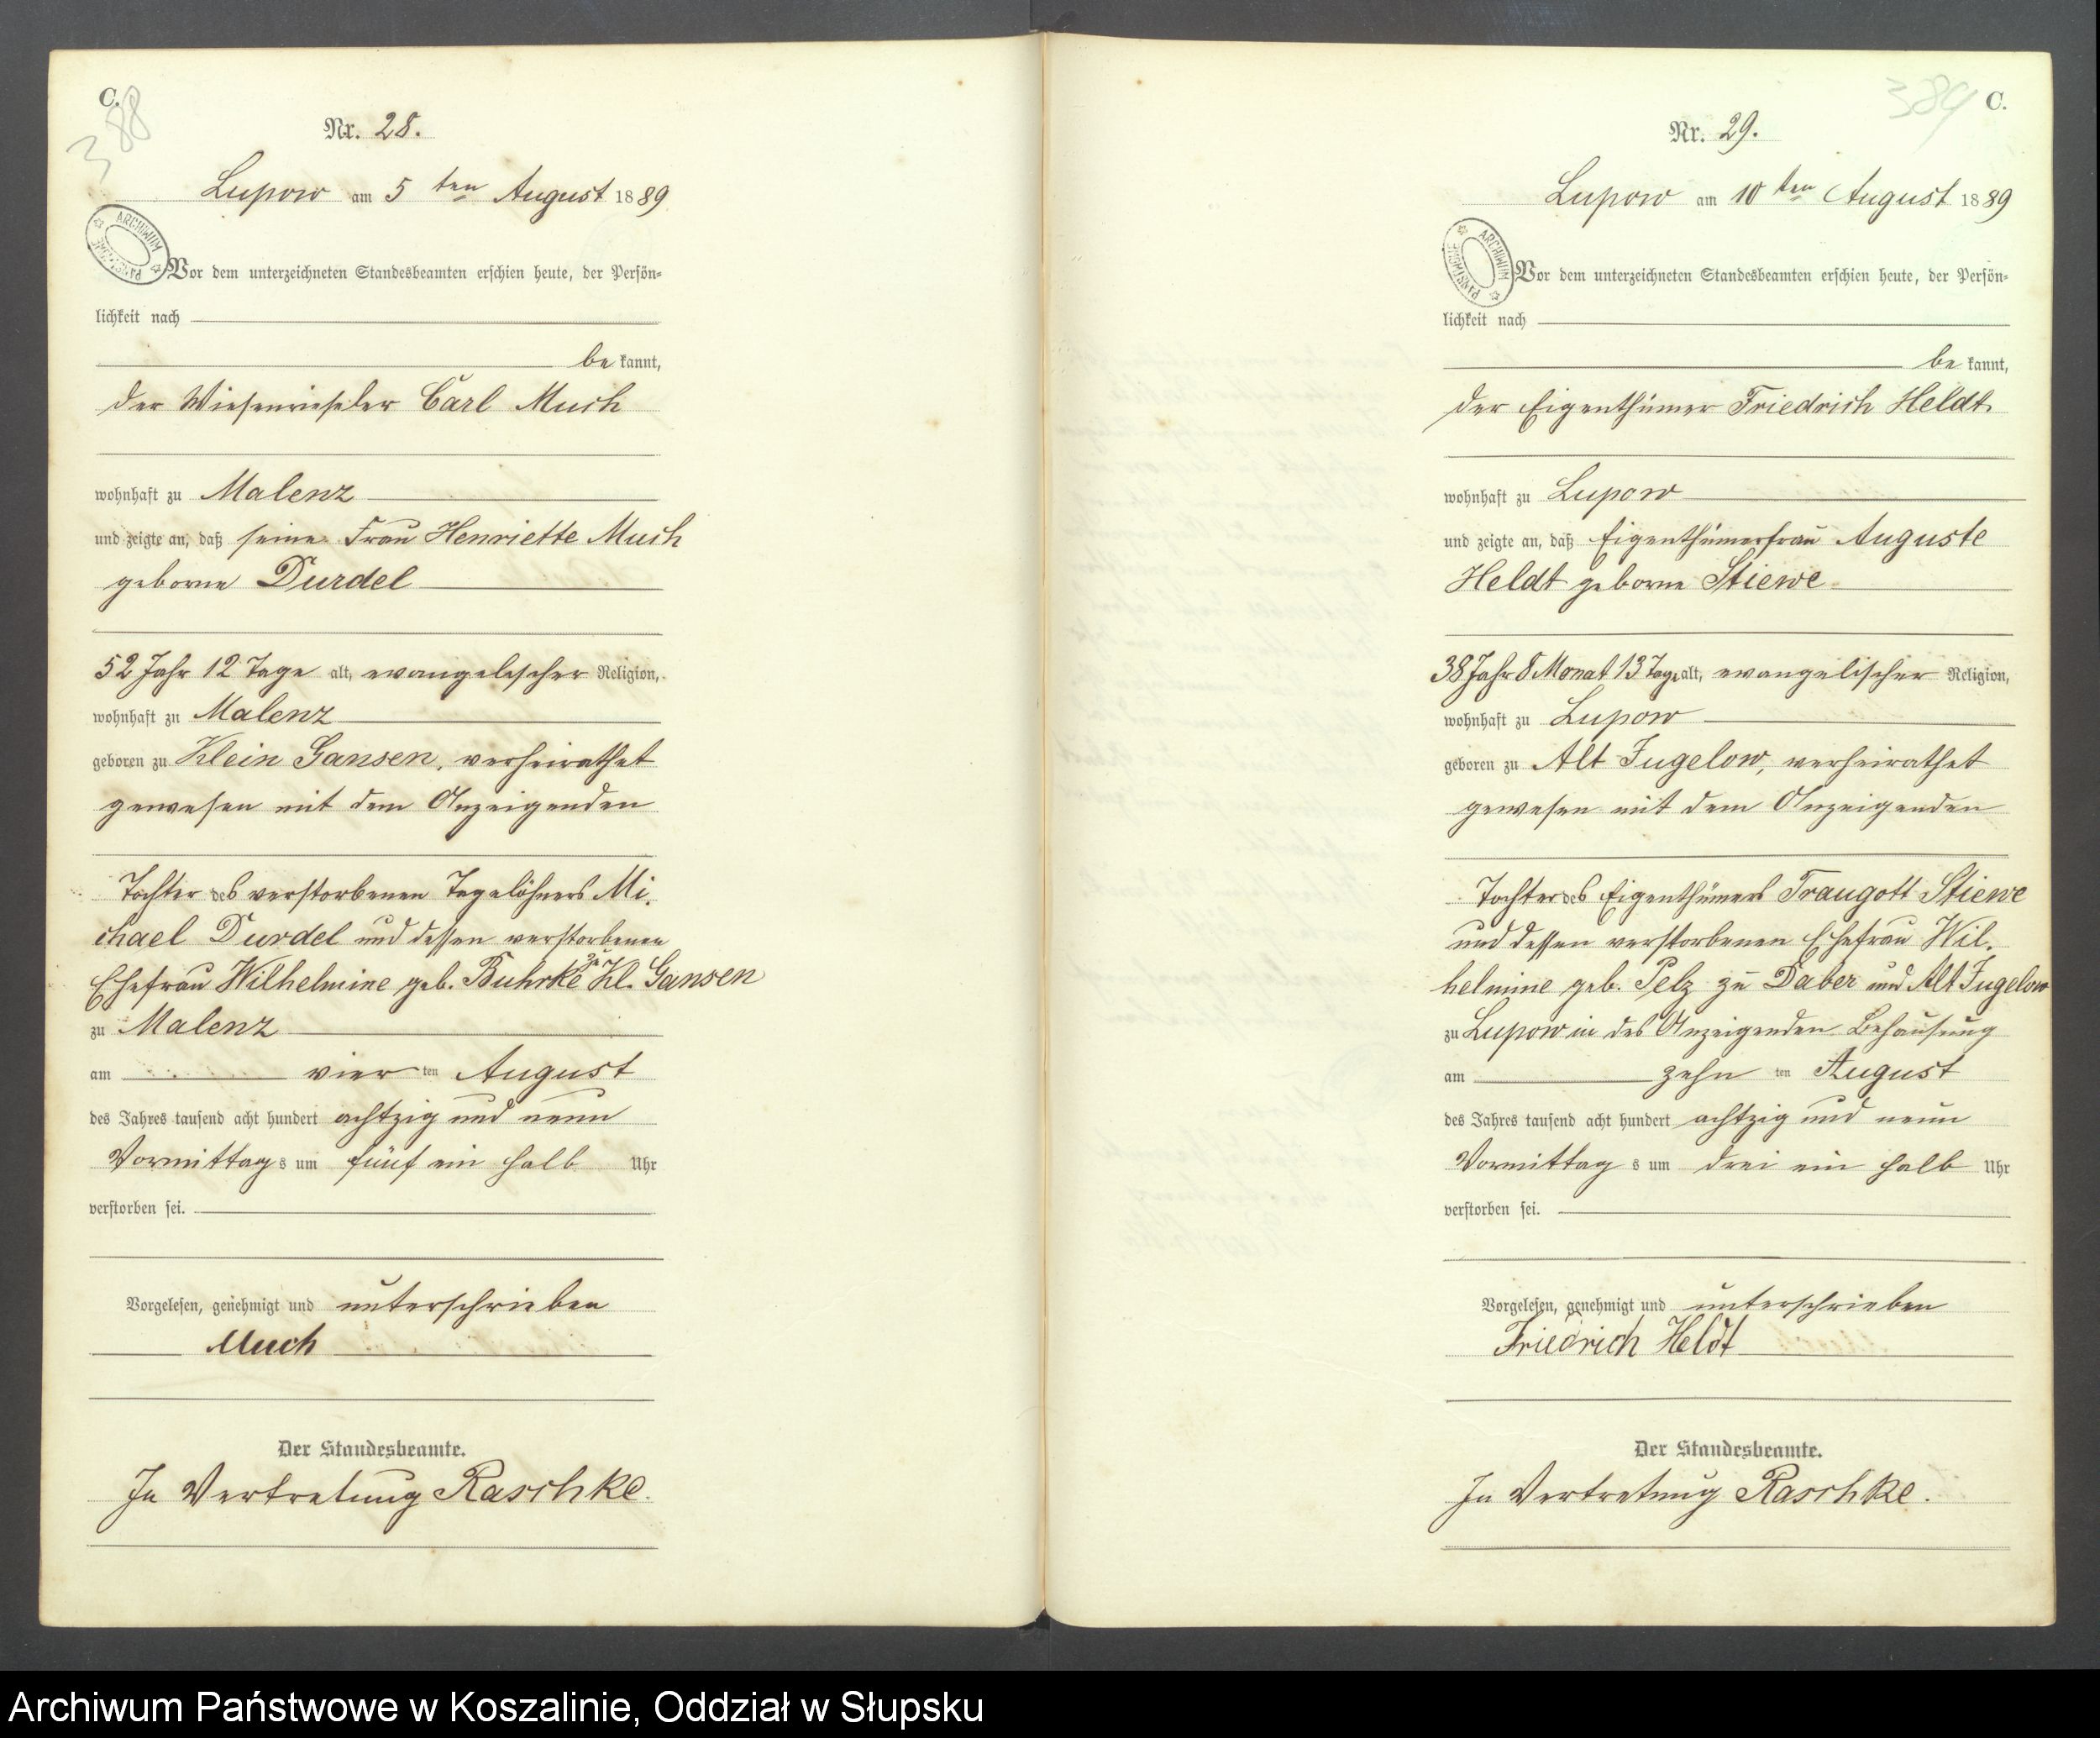 C.
388
Nr. 28.
Lupow am 5 ten August 1889
ARCHIWUM PAŃSTWOWE
Vor dem unterzeichneten Standesbeamten erschien heute, der Persön-
lichkeit nach
be kannt,
der Wiesenrieseler Carl Much
wohnhaft zu Malenz
und zeigte an, daß seine Frau Henriette Much
geborne Durdel
52 Jahr 12 Tage alt, evangelischer Religion,
wohnhaft zu Malenz
geboren zu Klein Gansen, verheirathet
gewesen mit dem Anzeigenden
Tochter des verstorbenen Tagelöhners Mi-
chael Durdel und dessen verstorbenen
Ehefrau Wilhelmine geb. Buhrke zu Kl. Gansen
zu Malenz
am vier ten August
des Jahres tausend acht hundert achtzig und neun
Vormittags um fünf ein halb Uhr
verstorben sei.
Vorgelesen, genehmigt und unterschrieben
Much
Der Standesbeamte.
In Vertretung Raschke.
389 C.
Nr. 29.
Lupow am 10 ten August 1889
ARCHIWUM PAŃSTWOWE
Vor dem unterzeichneten Standesbeamten erschien heute, der Persön-
lichkeit nach
be kannt,
der Eigenthümer Friedrich Heldt
wohnhaft zu Lupow
und zeigte an, daß Eigenthümerfrau Auguste
Heldt geborne Stiewe
38 Jahr 8 Monat 13 Tage alt, evangelischer Religion,
wohnhaft zu Lupow
geboren zu Alt Jugelow, verheirathet
gewesen mit dem Anzeigenden
Tochter des Eigenthümers Traugott Stiewe
und dessen verstorbenen Ehefrau Wil-
helmine geb. Pelz zu Daber und Alt Jugelow
zu Lupow in des Anzeigenden Behausung
am zehn ten August
des Jahres tausend acht hundert achtzig und neun
Vormittag s um drei ein halb Uhr
verstorben sei.
Vorgelesen, genehmigt und unterschrieben
Friedrich Heldt
Der Standesbeamte.
In Vertretung Raschke.
Archiwum Państwowe w Koszalinie, Oddział w Słupsku